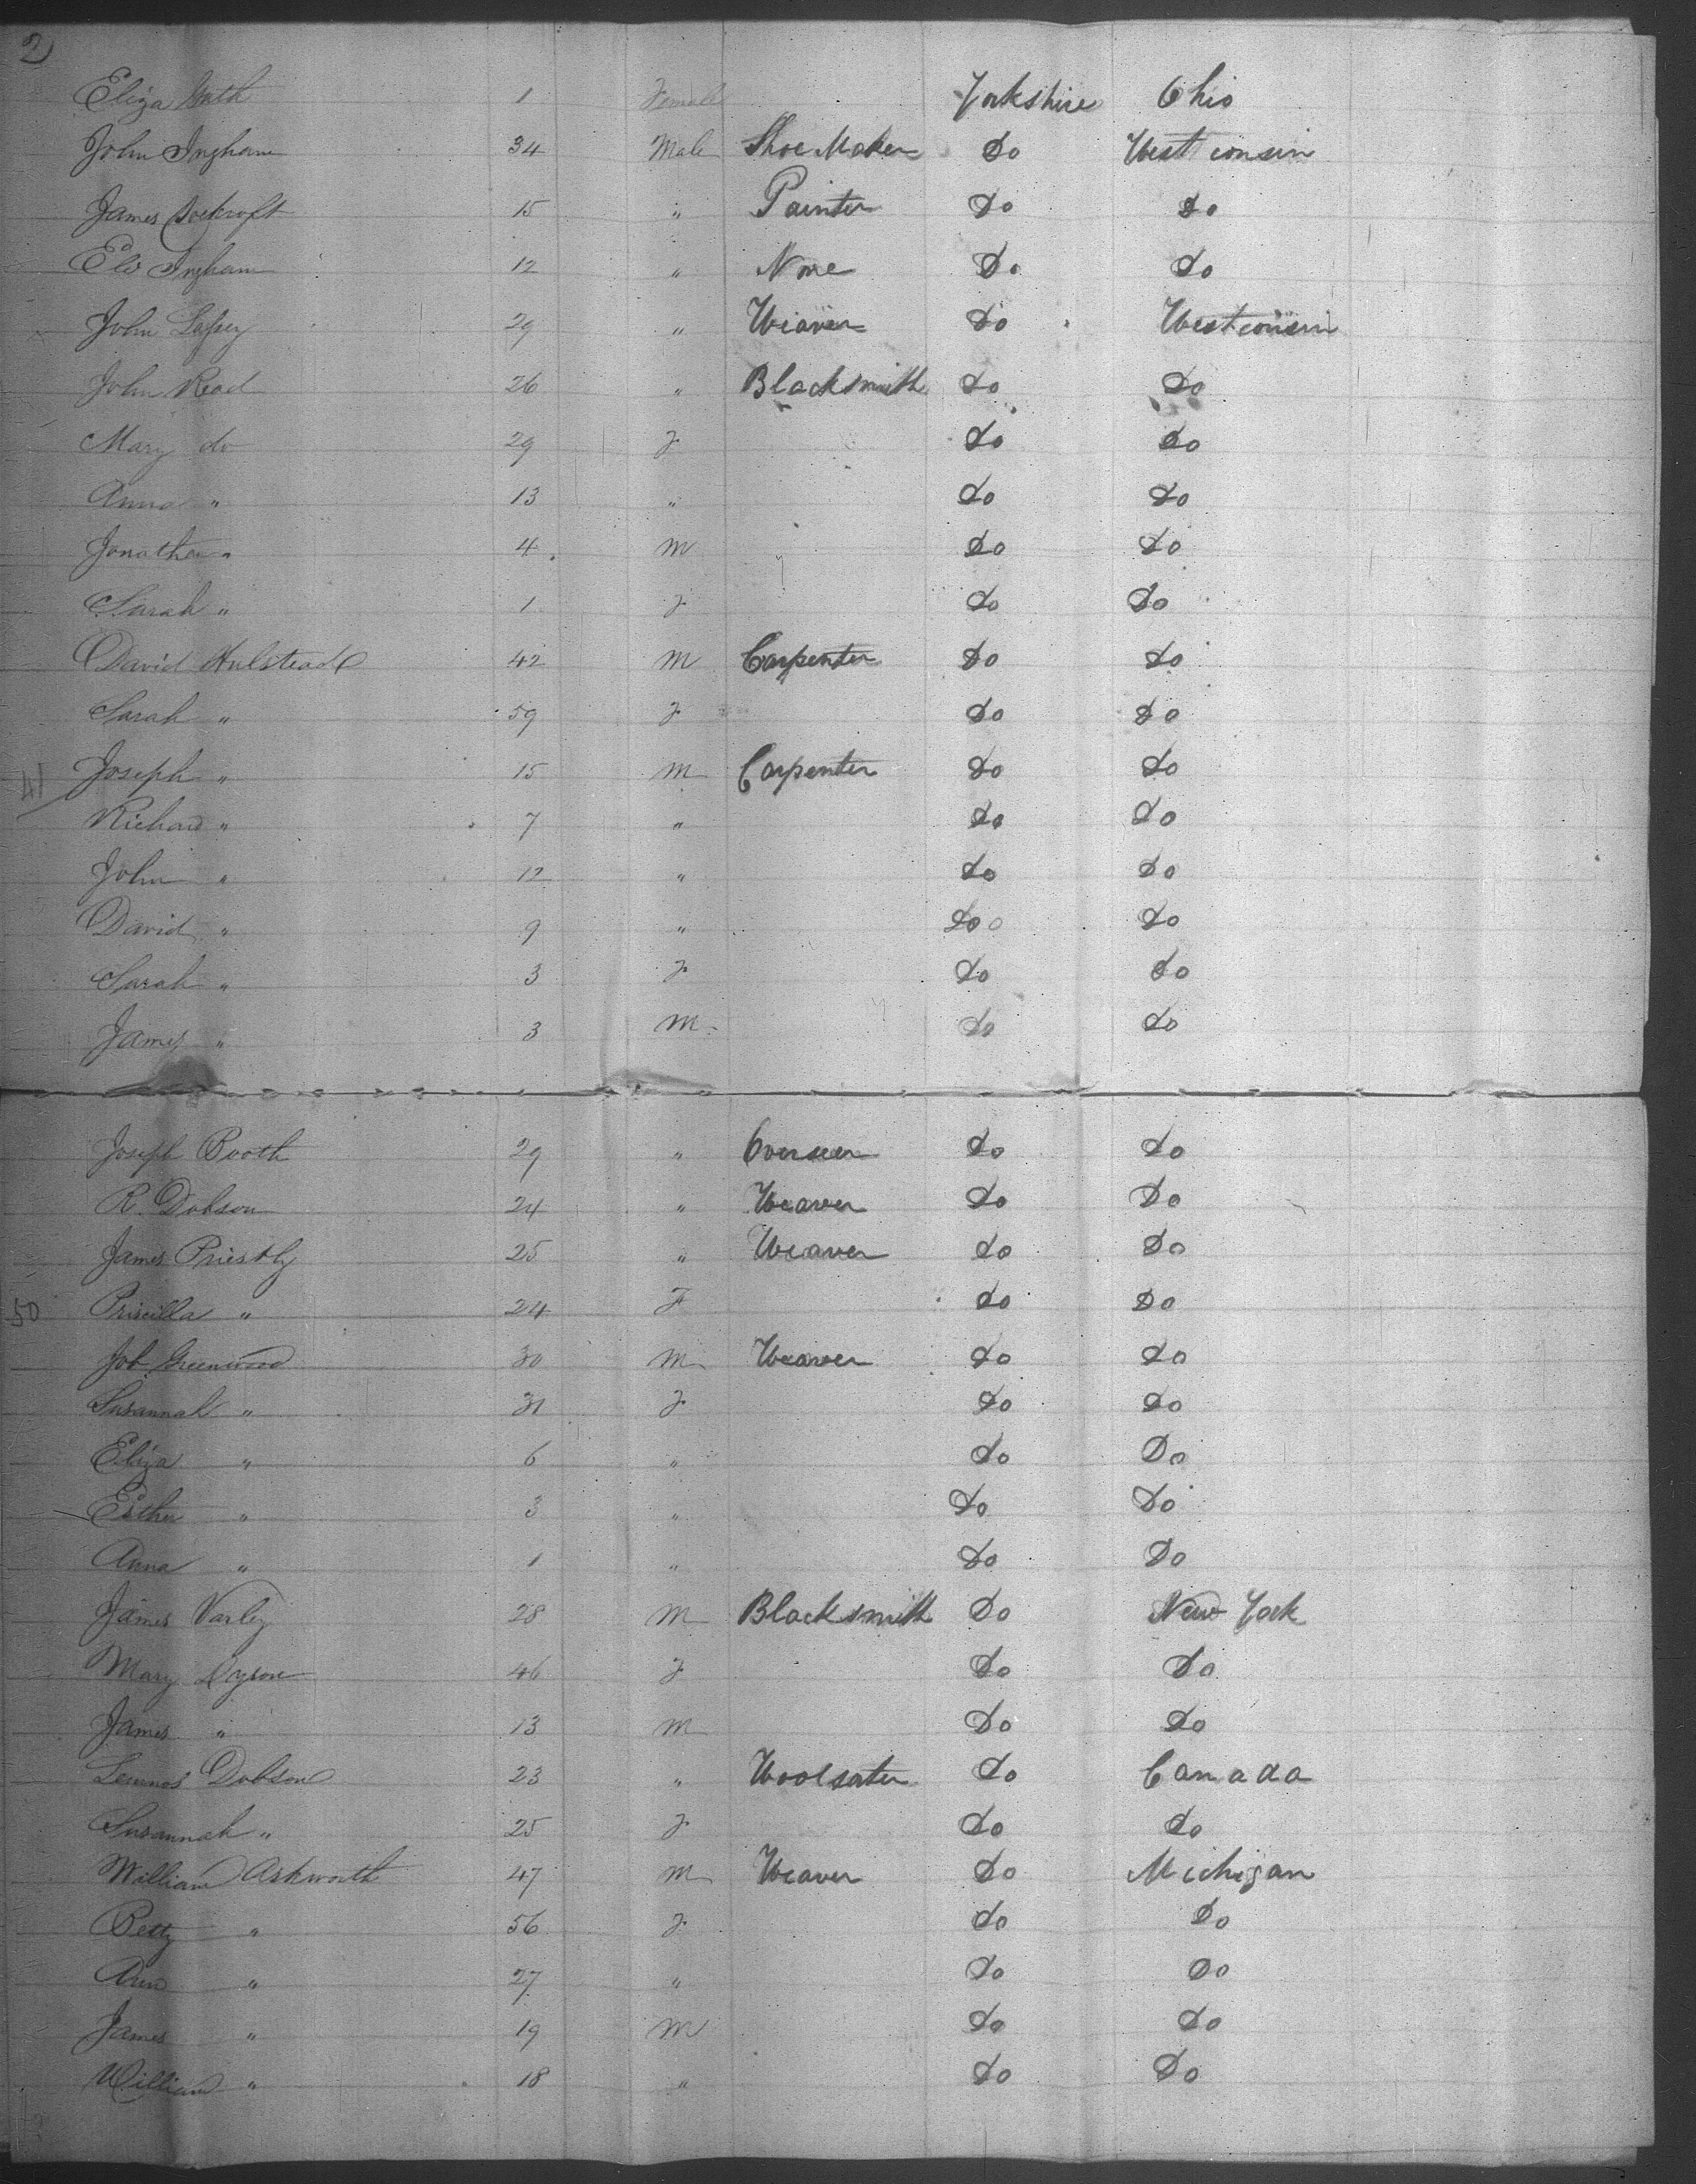 2
Eliza 1 Female Yorkshire Ohio
John Ingham 34 Male Shoe Maker Do Westconsin
James 15 " Painter Do Do
Eli Ingham 12 " None Do Do
John 29 " Weaver Do Westconsin
John Read 26 " Blacksmith Do Do
Mary do 29 F Do Do
Anna " 13 " Do Do
Jonathan " 4 M Do Do
Sarah " 1 F Do Do
David Hulstead 42 M Carpenter Do Do
Sarah " 59 F Do Do
41 Joseph " 15 M Carpenter Do Do
Richard " 7 " Do Do
John " 12 " Do Do
David " 9 " Do Do
Sarah " 3 F Do Do
James " 3 M Do Do
Joseph Booth 29 " Overseer Do Do
R. Dobson 24 " Weaver Do Do
James Priestly 25 " Weaver Do Do
50 Priscilla " 24 F Do Do
Job Greenwood 30 M Weaver Do Do
Susannah " 31 F Do Do
Eliza " 6 " Do Do
Esther " 3 " Do Do
Anna " 1 " Do Do
James Varley 28 M Blacksmith Do New York
Mary Dyson 46 F Do Do
James " 13 M Do Do
Dobson 23 " Woolsater Do Canada
Susannah " 25 F Do Do
William Ashworth 47 M Weaver Do Michigan
Betty " 56 F Do Do
Ann " 27 " Do Do
James " 19 M Do Do
William " 18 " Do Do